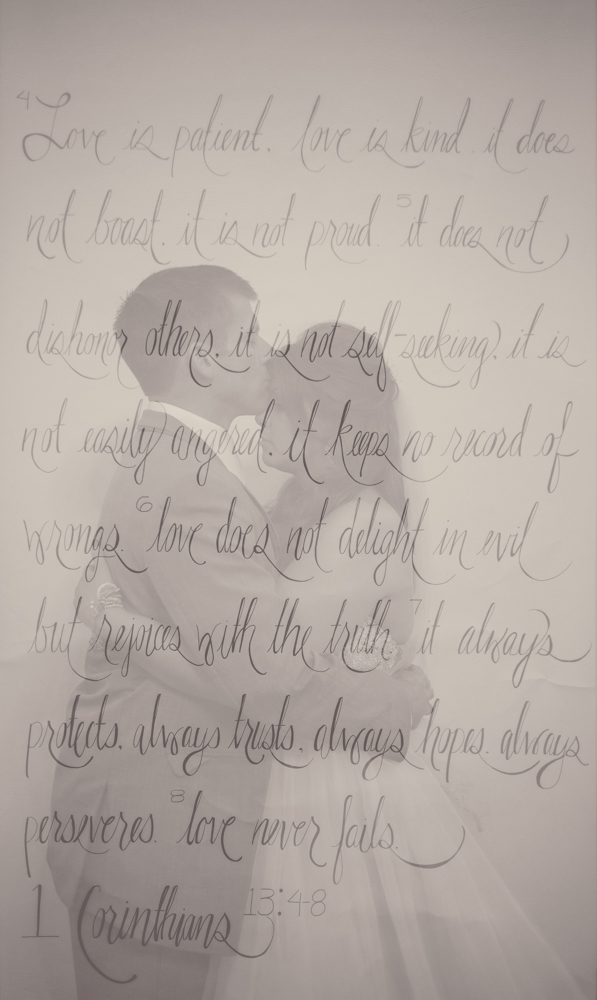 ⁴Love is patient. love is kind. it does
not boast. it is not proud. ⁵it does not
dishonor others. it is not self-seeking. it is
not easily angered. it keeps no record of
wrongs. ⁶love does not delight in evil
but rejoices with the truth. ⁷it always
protects. always trusts. always hopes. always
perseveres. ⁸love never fails.
1 Corinthians 13:4-8